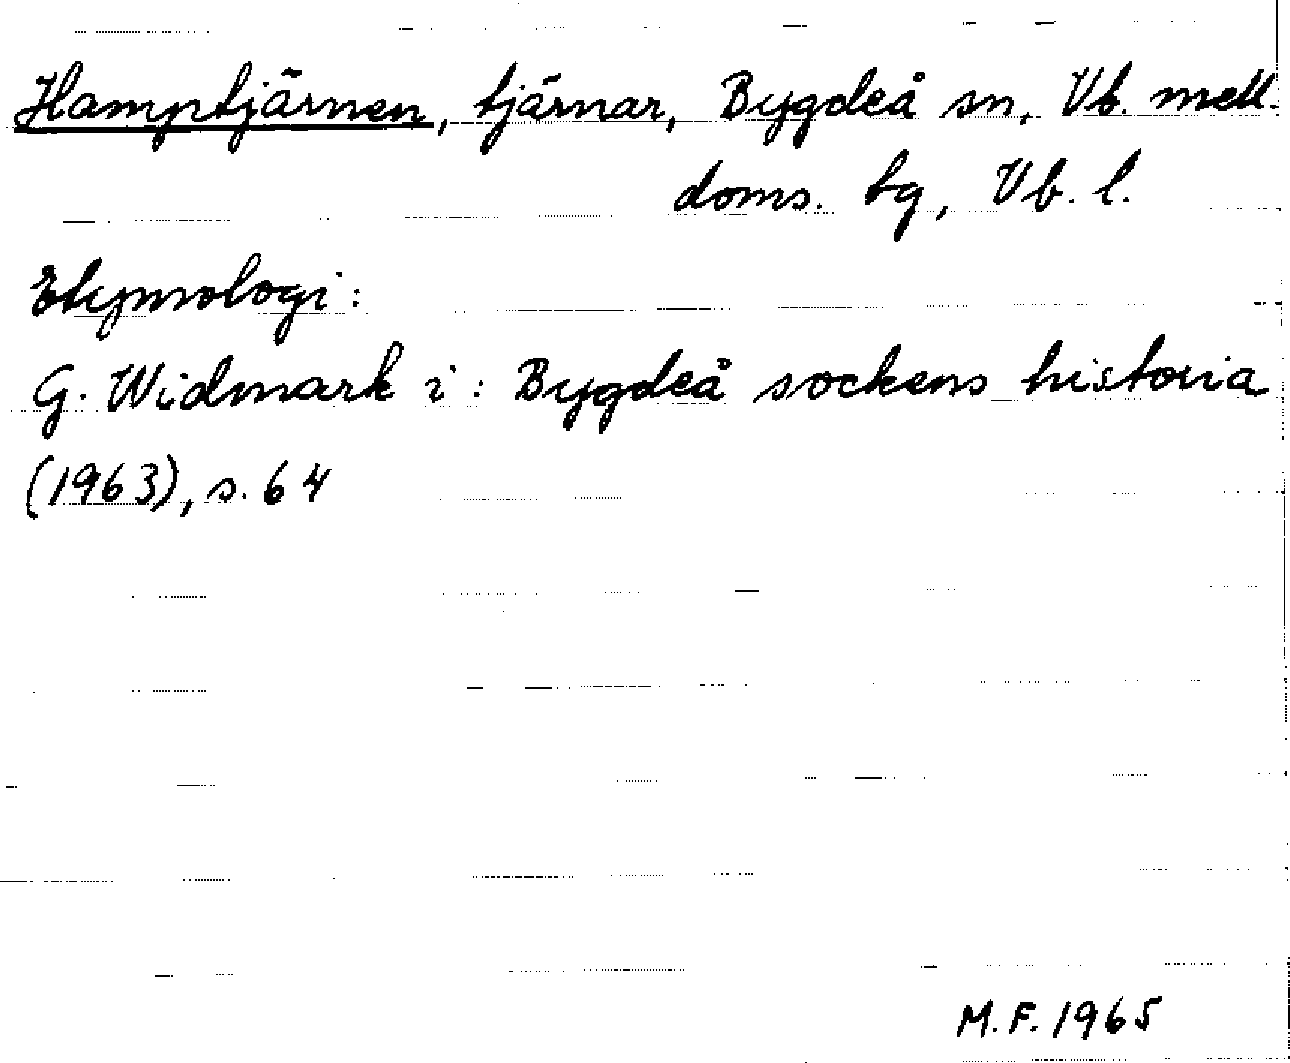 Hamptjärnen, tjärnar, Bygdeå sn, Vb. mell.
doms. tg, Vb. l.
Etymologi:
G. Widmark i: Bygdeå sockens historia
(1963), s. 64
M.F. 1965